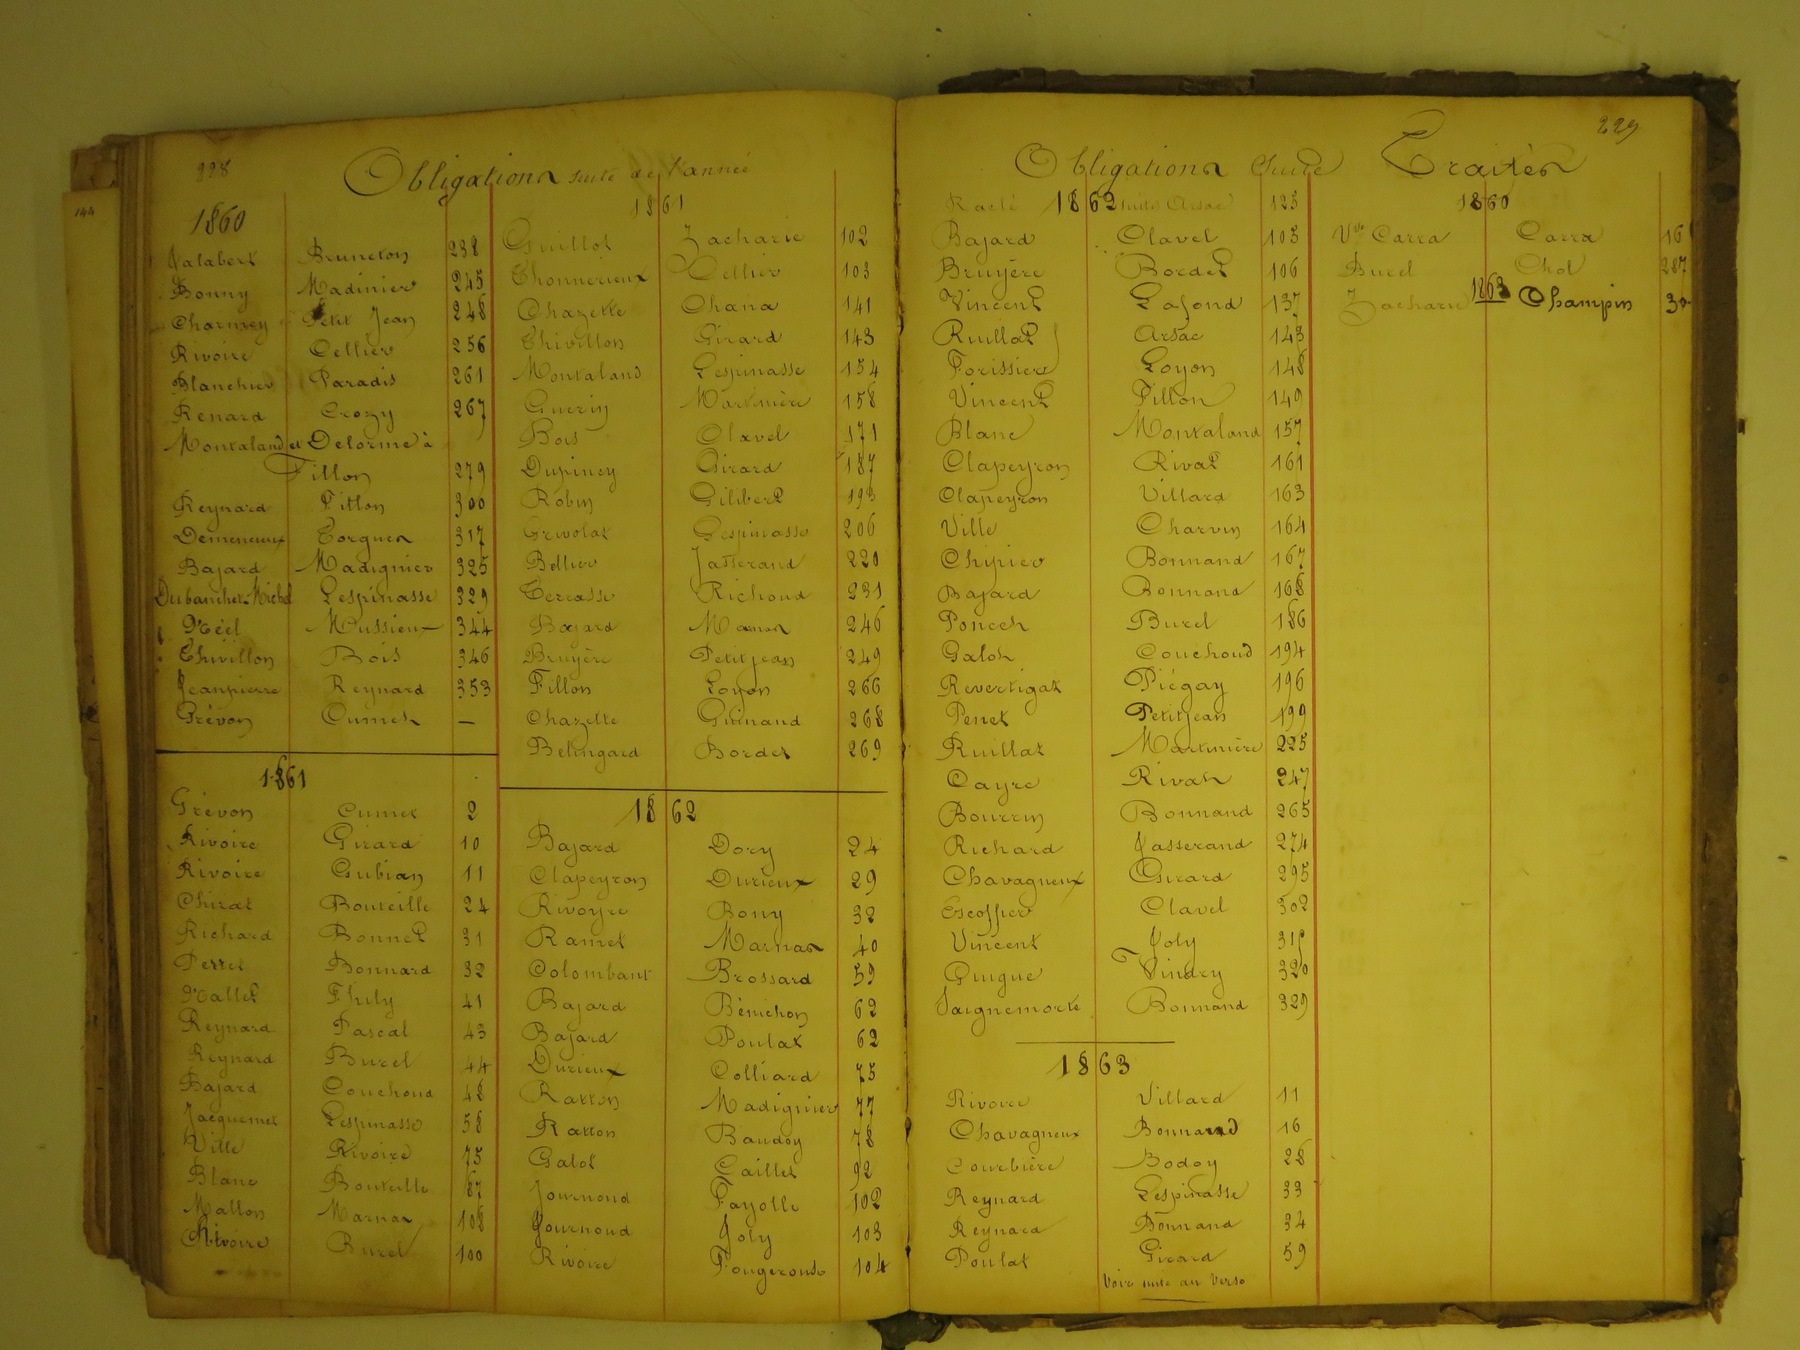 144
228
Obligations suite de l'année
1860
Jalabert Bruneton 238
Bonny Madinier 245
Charmey Petit Jean 248
Rivoire Cellier 256
Blanchier Paradis 261
Renard Crozy 267
Montaland et Delorme à
Fillon 279
Reynard Fillon 300
Demeneux Torgues 317
Bajard Madignier 325
Dubanchet Michel Lespinasse 329
Néel Mussieux 344
Thivillon Bois 346
Jeanpierre Reynard 353
Grévon Cumet —
1861
Grévon Cumet 2
Rivoire Girard 10
Rivoire Gubian 11
Chirat Bouteille 24
Richard Bonnet 31
Perret Bonnard 32
Mallet Fhily 41
Reynard Pascal 43
Reynard Burel 44
Bajard Couchoud 48
Jacquemet Lespinasse 58
Ville Rivoire 75
Blanc Bouteille 87
Mallon Marnas 108
Rivoire Burel 100
1861
Guillot Zacharie 102
Thonnerieux Cellier 103
Chazette Chana 141
Thivillon Girard 143
Montaland Lespinasse 154
Guerin Martinière 158
Bois Clavel 171
Dupiney Girard 187
Robin Gilibert 193
Grivolat Lespinasse 206
Bellier Jasserand 220
Terrasse Richoud 231
Bajard Manas 246
Bruyère Petitjean 249
Fillon Loyon 266
Chazette Guinand 268
Belingard Bordet 269
1862
Bajard Dory 24
Clapeyron Durieux 29
Rivoyre Bony 32
Ramet Marnas 40
Colombant Brossard 59
Bajard Bénichon 62
Bajard Poulat 62
Durieux Colliard 75
Ratton Madignier 77
Ratton Baudoy 78
Galot Caillet 92
Journoud Fayolle 102
Journoud Joly 103
Rivoire Fougerouse 104
229
Obligations Suite
1862 suite Arsac 125
Bajard Clavel 105
Bruyère Bordet 106
Vincent Lafond 137
Ruillat Arsac 143
Forissier Loyon 148
Vincent Fillon 149
Blanc Montaland 157
Clapeyron Rivat 161
Clapeyron Villard 163
Ville Charvin 164
Chipier Bonnand 167
Bajard Bonnand 168
Poncet Burel 186
Galot Couchoud 194
Revertigat Piégay 196
Penet Petitjean 199
Ruillat Martinière 225
Cayre Rivat 247
Bourrin Bonnand 265
Richard Jasserand 274
Chavagneux Girard 295
Escoffier Clavel 302
Vincent Joly 315
Guigue Vindry 320
Saignemorte Bonnand 329
1863
Rivoire Villard 11
Chavagneux Bonnand 16
Courbière Bodoy 28
Reynard Lespinasse 33
Reynard Bonnand 34
Poulat Girard 59
Voir suite au verso
Traités
1860
Vve Carra Carra 16
Burel Chol 287
1863
Zacharie Champin 30